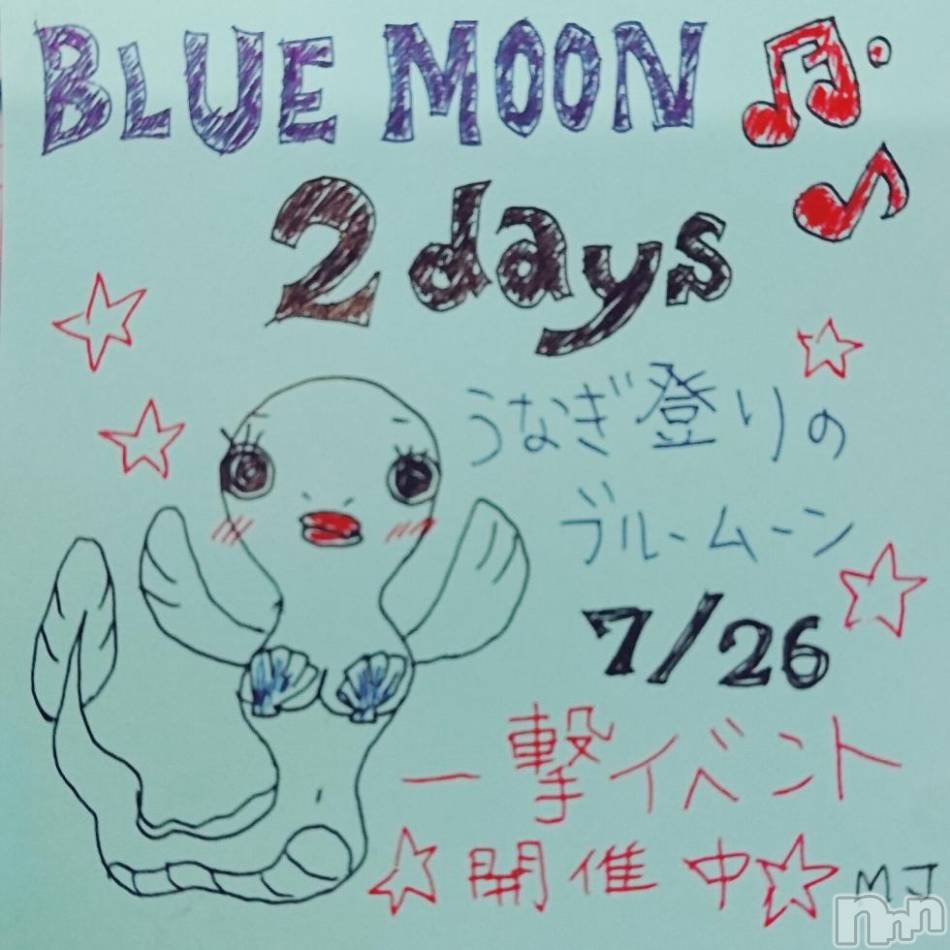 BLUE MOON
2 days
うなぎ登りの
ブルームーン
7/26
一撃イベント
開催中
MJ
nnn